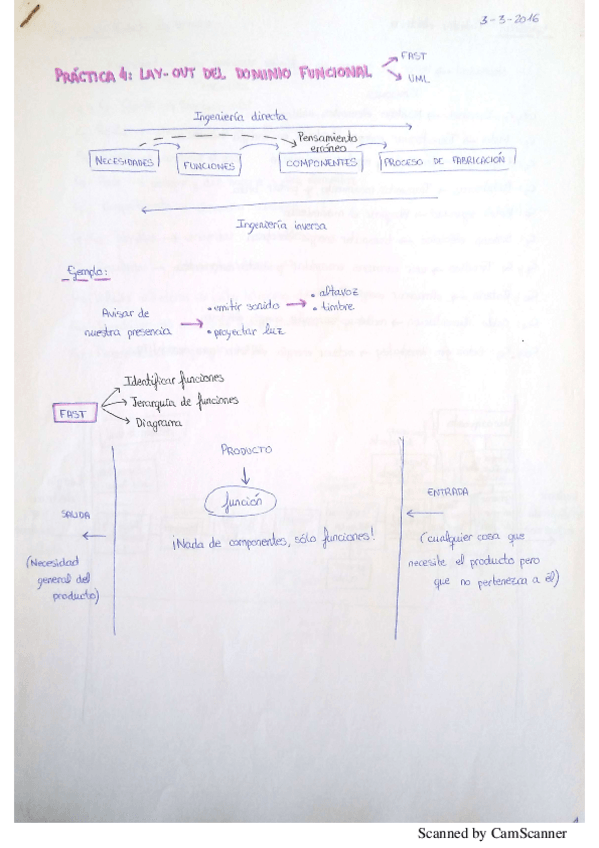 3-3-2016
PRÁCTICA 4: LAY-OUT DEL DOMINIO FUNCIONAL
FAST
UML
Ingeniería directa
Pensamiento
erróneo
NECESIDADES
FUNCIONES
COMPONENTES
PROCESO DE FABRICACIÓN
Ingeniería inversa
Ejemplo:
Avisar de
nuestra presencia
• emitir sonido
• proyectar luz
• altavoz
• timbre
FAST
Identificar funciones
Jerarquía de funciones
Diagrama
PRODUCTO
función
¡Nada de componentes, sólo funciones!
SALIDA
(Necesidad
general del
producto)
ENTRADA
(cualquier cosa que
necesite el producto pero
que no pertenezca a él)
Scanned by CamScanner